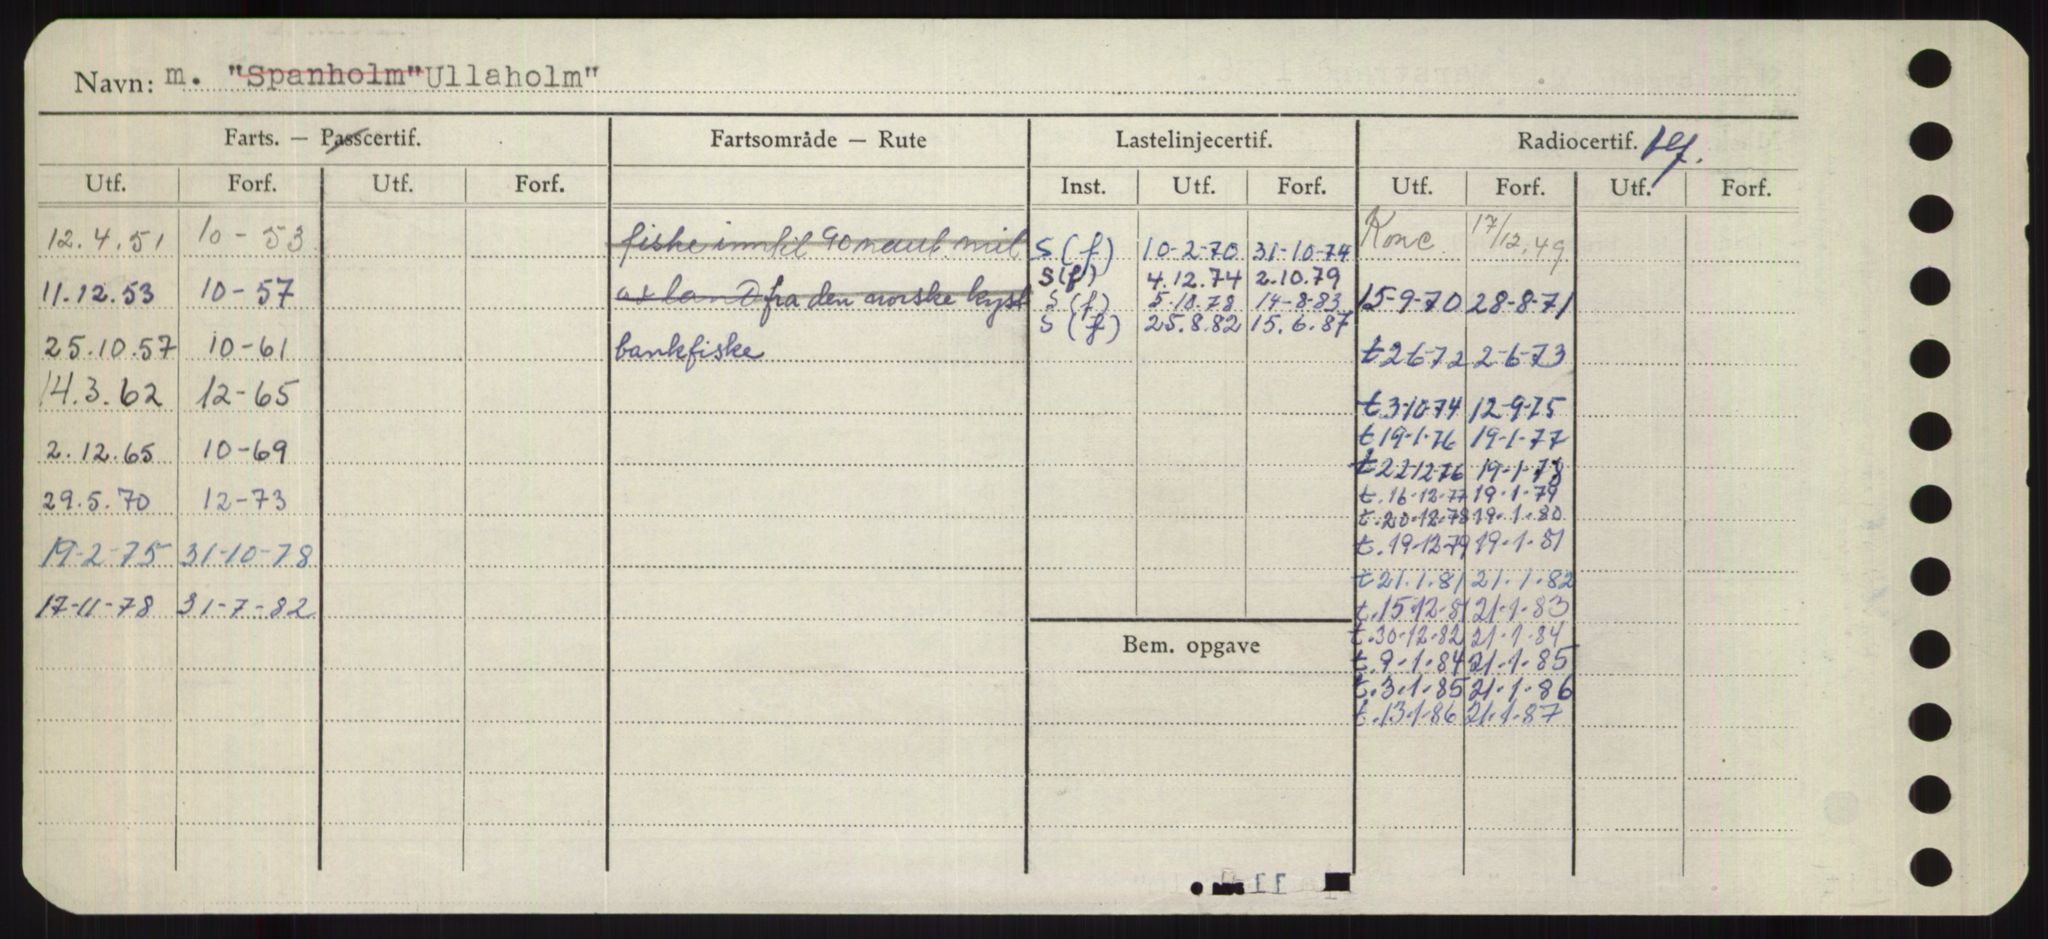 Navn: m. "Spanholm" Ullaholm"
Farts. — Passcertif. Fartsområde — Rute Lastelinjecertif. Radiocertif. tlf.
Utf. Forf. Utf. Forf. Inst. Utf. Forf. Utf. Forf. Utf. Forf.
12.4.51 10-53 fiske inntil 90 naut. mil S(f) 10-2-70 31-10-74 Konc. 17/12.49
S(f) 4.12.74 2.10.79
11.12.53 10-57 fra den norske kyst S(f) 5-10.78 14-8-83 15-9-70 28-8-71
S(f) 25.8.82 15.6.87
25.10.57 10-61 bankfiske t 2-6-72 2-6-73
14.3.62 12-65 t 3-10-74 12-9-75
t 19-1-76 19-1-77
2.12.65 10-69 t 22-12-76 19-1-78
29.5.70 12-73 t. 16-12-77 19-1-79
t. 20-12-78 19-1-80
19-2-75 31-10-78 t. 19-12-79 19-1-81
t 21.1.81 21.1.82
17-11-78 31-7-82 t. 15-12-81 21-1-83
t. 30-12-82 21-1-84
Bem. opgave
t. 9-1-84 21-1-85
t. 3-1-85 21-1-86
t. 13-1-86 21-1-87